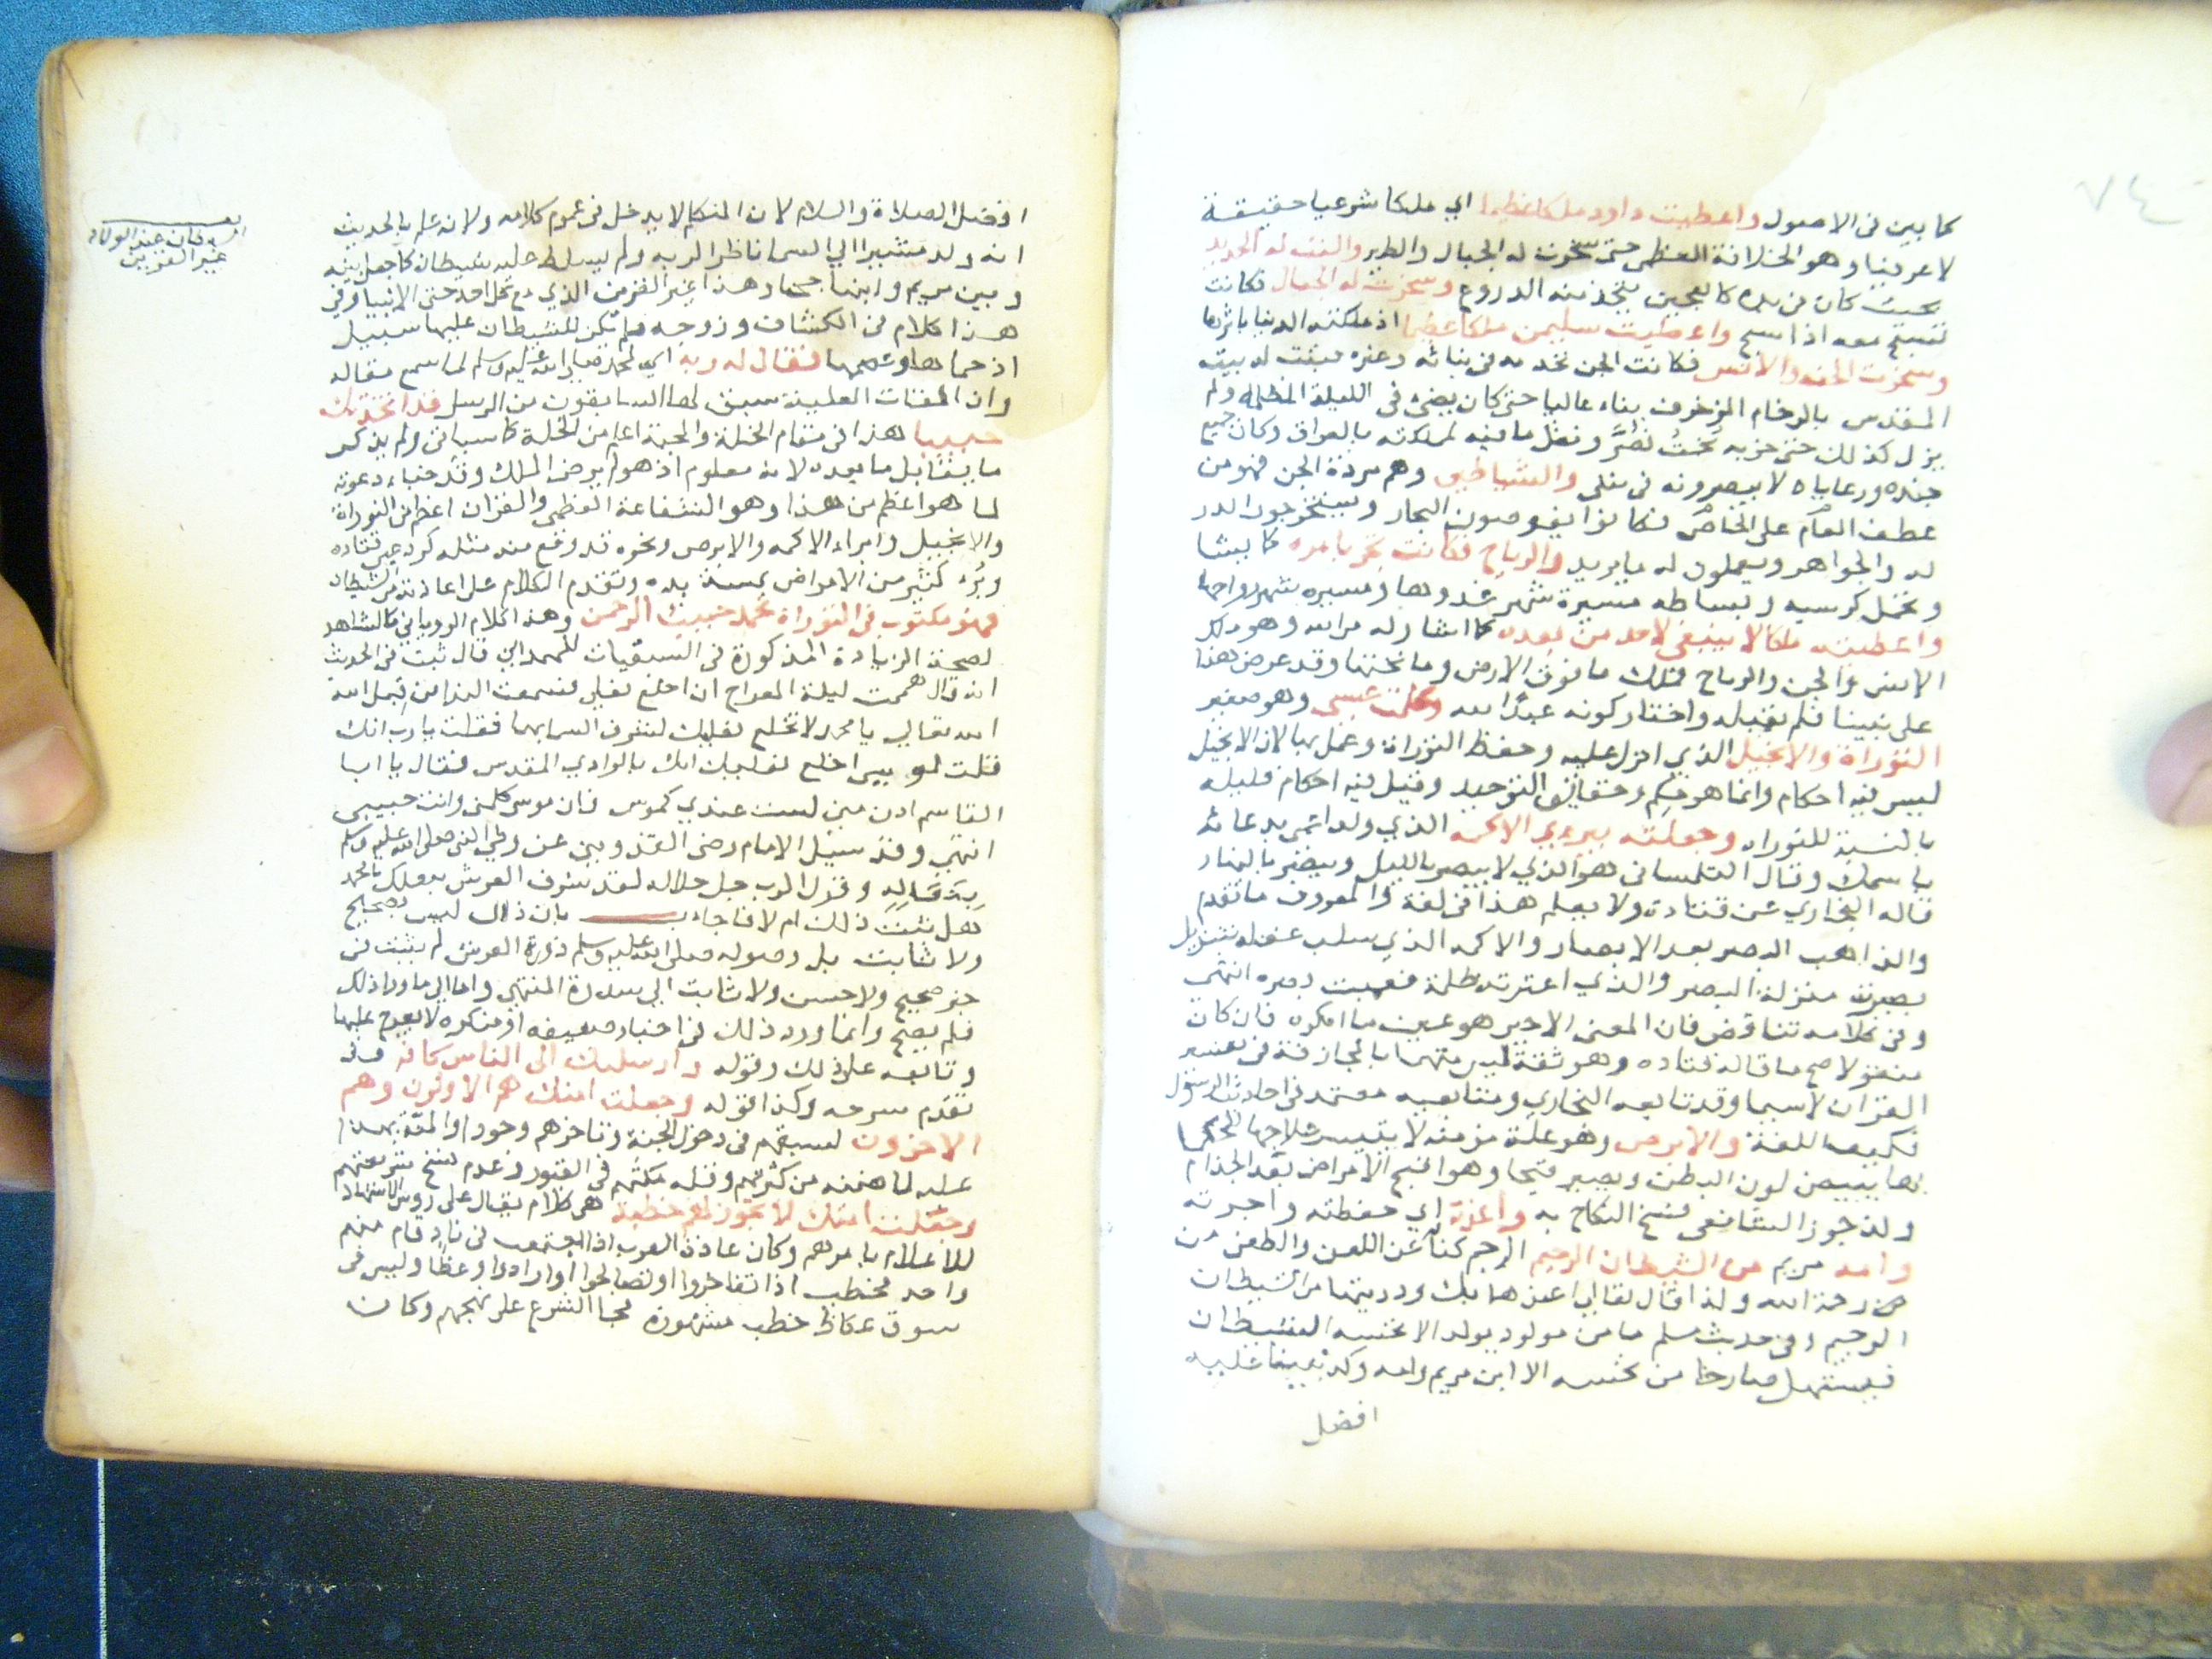 ٧٤
كما بين في الاصول واعطيت داود ملكا عظيما اي ملكا شرعيا حقيقة
لا عرفيا وهو الخلافة العظمى حتى سخرت له الجبال والطير والنت له الحديد
بحيث كان في يده كالعجين يتخذ منه الدروع وسخرت له الجبال فكانت
تسبح معه اذا سبح واعطيت سليمن ملكا عظيما اذ ملكته الدنيا باثرها
وسخرت الجن والانس فكانت الجن تخدمه في بنائه وغيره فبنت له بيت
المقدس بالرخام المزخرف بناء عاليا حتى كان يضئ في الليلة المظلمة ولم
يزل كذلك حتى خربه بخت نصر ونقل ما فيه لمملكته بالعراق وكان جميع
جنده ورعاياه لا يبصرونه في والشياطين وهم مردة الجن فهو من
عطف العام على الخاص فكانوا يغوصون البحار ويستخرجون الدر
له والجواهر ويعملون له ما يريد والرياح فكانت تجر بامره كما يشا
وتحمل كرسيه وبساطه مسيرة شهر غدوها ومسيرة شهر رواحها
واعطيته ملكا لا ينبغي لاحد من بعده كما اشار له مرامه وهو ملك
الانس والجن والرياح فملك ما فوق الارض وما تحتها وقد عرض هذا
على نبينا فلم يقبله واختار كونه عبدا لله وعلمت عيسى وهو صغير
التوراة والانجيل الذي انزل عليه وحفظ التوراة وعمل بها لان الانجيل
ليس فيه احكام وانما هو حكم وحقائق التوحيد وقيل فيه احكام قليلة
بالنسبة للتوراه وجعلته يبرئ الاكمه الذي ولد اعمى بدعائه
باسمك وقال التلمساني هو الذي لا يبصر بالليل ويبصر بالنهار
قاله البخاري عن قتادة ولا يعلم هذا في لغة والمعروف ما تقدم
والذاهب البصر بعد الابصار والاكمه الذي سلب عقله بتنزيل
بصيرته منزلة البصر والذي اعترته ظلمة فعميت بصره انتهى
وفي كلامه تناقض فان المعنى الاخير هو عين ما انكره فان كان
منقولا صح ما قاله قتاده وهو ثقة ليس متهما بالمجازفة في تفسير
القران لا سيما وقد تابعه البخاري ومتابعيه معتمد في احاديث الرسول
فكيف اللغة والابرص وهو علة مزمنة لا يتيسر علاجها
بها يبيض لون البطن ويصير قبيحا وهو اقبح الامراض بعد الجذام
ولذ جوز الشافعي فسخ النكاح به واعذته اي حفظته واجرته
وامه مريم من الشيطان الرجيم الرجم كناية عن اللعن والطعن من
رحمة الله ولذا قال تعالى اعيذها بك وذريتها من الشيطان
الرجيم وفي حديث مسلم ما من مولود يولد الا نخسه الشيطان
فيستهل صارخا من نخسه الا ابن مريم وامه وكذ نبينا عليه
افضل
افضل الصلاة والسلام لان المتكلم لا يدخل في عموم كلامه ولانه علم بالحديث
انه ولد مشيرا الي السما ناظرا لربه ولم يسلط عليه شيطان كما جعل بينه
وبين مريم وابنها حجابا وهذا غير القرين الذي مع كل احد حتى الانبيا وفي
هذا كلام في الكشاف وزوجه فلم يكن للشيطان عليها سبيل
اذ حماها وعصمها فقال له ربه اي لمحمد صلى الله عليه وسلم لما سمع مقاله
وان الصفات العلية سبق لها السابقون من الرسل قد اتخذتك
حبيبا هذا في مقام الخلة والمحبة اعلى من الخلة كما سياتي ولم يذكر
ما يقابل ما بعده لانه معلوم اذ هو لم يرض الملك وقد خباء دعوته
لما هو اعظم من هذا وهو الشفاعة العظمى والقران اعظم من التوراة
والانجيل وابراء الاكمه والابرص ونحوه قد وقع منه مثله كرد عين قتاده
وبرء كثير من الامراض بمسة يده وتقدم الكلام على اعاذته من الشيطان
فهو مكتوب في التوراة محمد حبيب الرحمن وهذا كلام الروياني كالشاهد
لصحة الزيادة المذكورة في السبعيات للهمداني قال ثبت في الحديث
انه قال هممت ليلة المعراج ان اخلع نعلي فسمعت الندا من قبل الله
الله تعالي يا محمد لا تخلع نعليك لتشرف السما بهما فقلت يا رب انك
قلت لموسى اخلع نعليك انك بالوادي المقدس فقال يا ابا
القاسم ادن مني لست عندي كموسى فان موسى كليمي وانت حبيبي
انتهى وقد سيل الامام رضي القزويني عن وطي النبي صلى الله عليه وسلم
وقول الرب جل جلاله لقد شرف العرش بنعلك يا محمد
هل ثبت ذلك ام لا فاجاب بان ذلك ليس بصحيح
ولا ثابت بل وصوله صلى الله عليه وسلم ذروة العرش لم يثبت في
خبر صحيح ولا حسن ولا ثابت الي سدرة المنتهى واما الي ما وراء ذلك
فلم يصح وانما ورد ذلك في اخبار ضعيفه او منكره لا يعرج عليها
وتابعه على ذلك وقوله وارسلتك الى الناس كافة قد
تقدم شرحه وكذا قوله وجعلت امتك هم الاولون وهم
الاخرون لسبقهم في دخول الجنة وتاخرهم وجودا والمنة بهذا
عليه لما من كثرتهم وقلة مكثهم في القبور وعدم نسخ شريعتهم
وجعلت امتك لا تجوز لهم خطبة هي كلام يقال على رؤس الاشهاد
للاعلام بامرهم وكان عادة العرب اذا اجتمعت في ناد قام منهم
واحد فخطب اذا تفاخروا او تصالحوا او ارادوا وعظا وليس في
سوق عكاظ خطب مشهورة فجا الشرع على نهجهم وكان